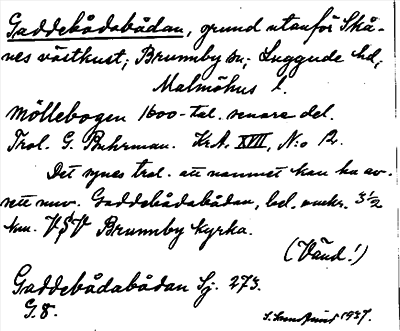 Gaddebådabådan, grund utanför Skå-
nes västkust; Brunnby sn; Luggude hd;
Malmöhus l.
Möllebogen 1600-tal. senare del.
Trol. G. Buhrman. Kr.A. XVII, N:o 12.
Det synes trol. att namnet kan ha av-
sett nuv. Gaddebådabådan, bel. omkr. 3 1/2
km. V§V Brunnby kyrka.
(Vänd!)
Gaddebådabådan Sj. 273.
G.8.
1937.